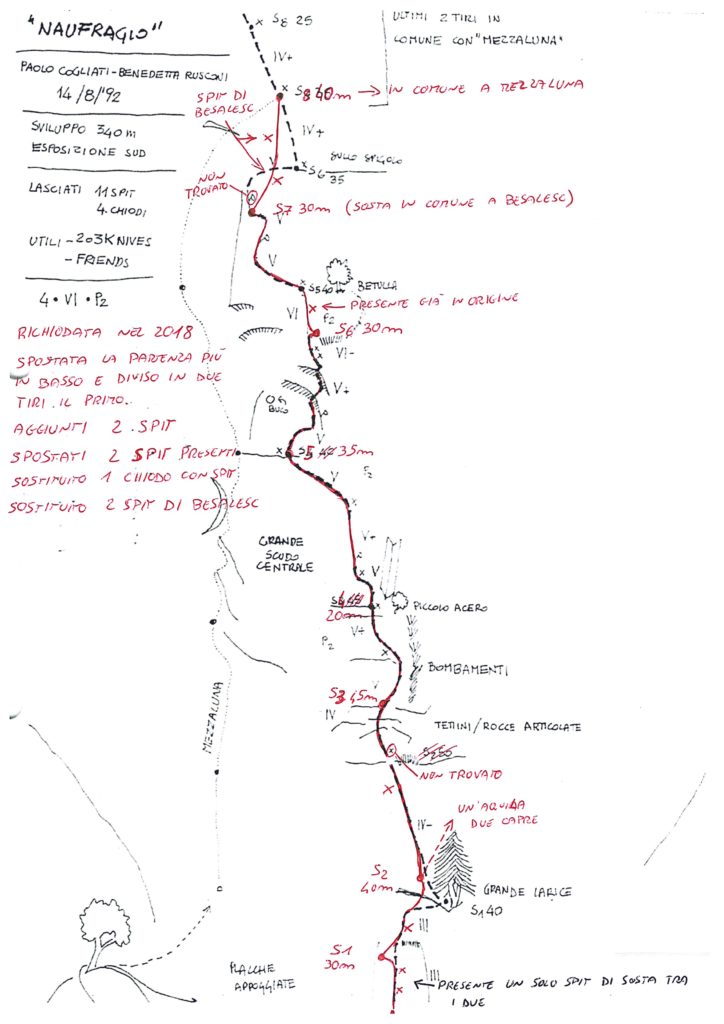 "NAUFRAGIO"
PAOLO COGLIATI-BENEDETTA RUSCONI
14/8/'92
SVILUPPO 340 m
ESPOSIZIONE SUD
LASCIATI 11 SPIT
4. CHIODI
UTILI - 2o3 KNIVES
- FRIENDS
4 • VI • P2
RICHIODATA NEL 2018
SPOSTATA LA PARTENZA PIÙ
IN BASSO E DIVISO IN DUE
TIRI IL PRIMO..
AGGIUNTI 2 SPIT
SPOSTATI 2 SPIT PRESENTI
SOSTITUITO 1 CHIODO CON SPIT
SOSTITUITO 2 SPIT DI BESALESC
S8 25
ULTIMI 2 TIRI IN
COMUNE CON "MEZZALUNA"
IV+
40m → IN COMUNE A MEZZALUNA
SPIT DI
BESALESC
IV+
V
S6
35
SULLO SPIGOLO
NON
TROVATO
S7 30m (SOSTA IN COMUNE A BESALESC)
V
V
S5 40
BETULLA
VI
P2
PRESENTE GIÀ IN ORIGINE
S6 30m
VI-
V+
BUCO
V
35m
V
P2
V+
V
GRANDE
SCUDO
CENTRALE
PICCOLO ACERO
20m
V+
P2
BOMBAMENTI
V
S3 45m
IV
TETTINI/ROCCE ARTICOLATE
NON TROVATO
MEZZALUNA
UN'AQUILA
DUE CAPRE
IV-
S2
40m
GRANDE LARICE
S1 40
III
S1
30m
III
PLACCHE
APPOGGIATE
PRESENTE UN SOLO SPIT DI SOSTA TRA
I DUE